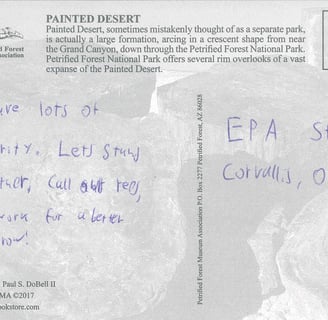 PAINTED DESERT
Painted Desert, sometimes mistakenly thought of as a separate park,
is actually a large formation, arcing in a crescent shape from near
the Grand Canyon, down through the Petrified Forest National Park.
Petrified Forest National Park offers several rim overlooks of a vast
expanse of the Painted Desert.
ed Forest
Association
ave lots of
rity. Lets stand
ther, Call our reps,
work for a better
row!
Paul S. DoBell II
MA ©2017
ookstore.com
Petrified Forest Museum Association P.O. Box 2277 Petrified Forest, AZ 86028
EPA St
Corvallis, O